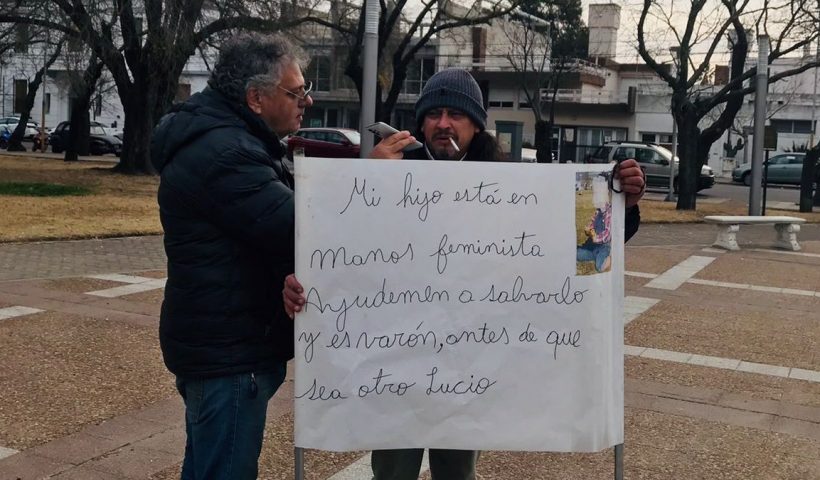 Mi hijo está en
Manos feminista
Ayudemen a salvarlo
y es varón, antes de que
sea otro Lucio